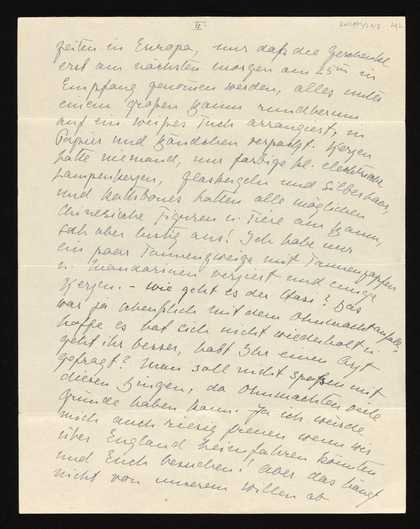 II
zeiten in Europa, nur daß die Geschenke
erst am nächsten morgen am 25ten in
Empfang genommen werden, alles unter
einem großen Baum rundherum
auf ein weißes Tuch arrangiert, in
Papier und Bändchen verpackt. Kerzen
hatte niemand, nur farbige kl. electrische
Lampenkerzen, Glaskugeln und Silberhaar,
und hatten alle möglichen
Chinesische Figuren u. Tiere am Baum,
sah aber lustig aus! Ich habe nur
ein paar Tannenzweige mit Tannenzapfen
u. Mandarinen verziert und einige
Kerzen. – Wie geht es der ? Das
war ja scheußlich mit dem Ohnmachtanfalle,
hoffe es hat sich nicht wiederholt u.
geht ihr besser, habt Ihr einen Arzt
gefragt? Man soll nicht spaßen mit
diesen Dingen, da Ohnmachten viele
Gründe haben kann. Ja ich würde
mich auch riesig freuen wenn wir
über England heimfahren könnten
und Euch besuchen! Aber das hängt
nicht von unserem Willen ab